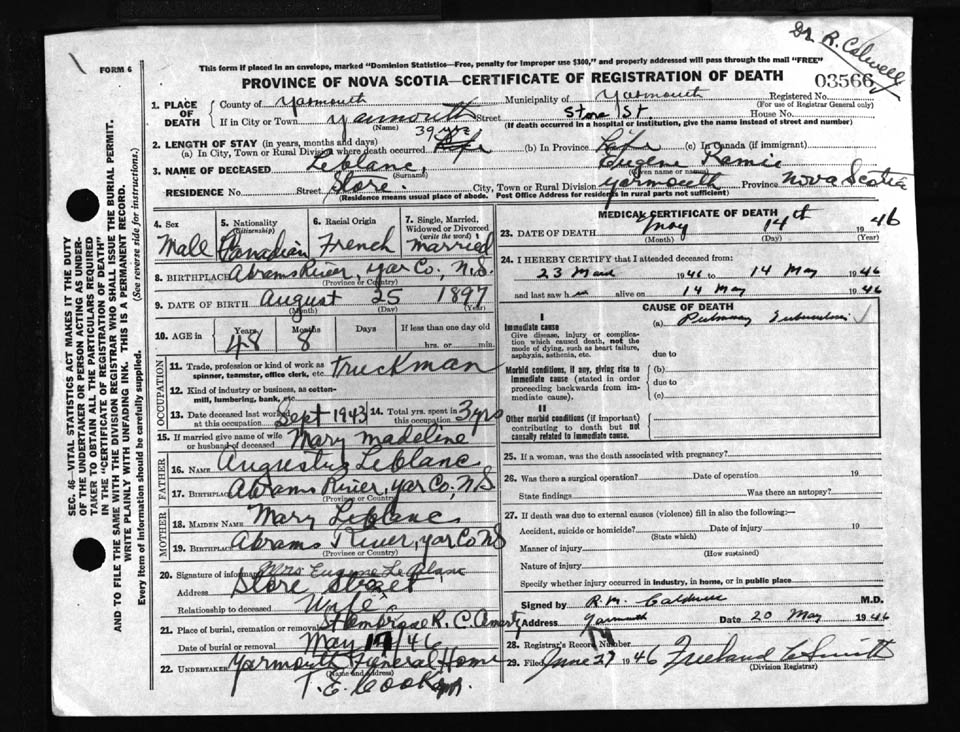 Dr. R. Calwell
FORM 6
This form if placed in an envelope, marked "Dominion Statistics—Free, penalty for improper use $300," and properly addressed will pass through the mail "FREE"
PROVINCE OF NOVA SCOTIA—CERTIFICATE OF REGISTRATION OF DEATH
03566
1. PLACE OF DEATH County of Yarmouth Municipality of Yarmouth Registered No.
(For use of Registrar General only)
If in City or Town Yarmouth Street House No.
(Name) (If death occurred in a hospital or institution, give the name instead of street and number)
2. LENGTH OF STAY (in years, months and days) 39 yrs
(a) In City, Town or Rural Division where death occurred (b) In Province Life (c) In Canada (if immigrant)
3. NAME OF DECEASED Leblanc, Eugene
(Surname) (Given name or names)
RESIDENCE No. Street Store. City, Town or Rural Division Yarmouth Province Nova Scotia
(Residence means usual place of abode. Post Office Address for residents in rural parts not sufficient)
4. Sex
Male
5. Nationality
(Citizenship)
Canadian
6. Racial Origin
French
7. Single, Married, Widowed or Divorced
(write the word)
Married
8. BIRTHPLACE Abrams River, Yar Co., N.S.
(Province or Country)
9. DATE OF BIRTH August 25 1897
(Month) (Day) (Year)
10. AGE in Years Months Days If less than one day
48 8 hrs. or min.
OCCUPATION
11. Trade, profession or kind of work as spinner, teamster, office clerk, etc. Truckman
12. Kind of industry or business, as cotton-mill, lumbering, bank, etc.
13. Date deceased last worked at this occupation Sept 1943 14. Total yrs. spent in this occupation 3 yrs
15. If married give name of wife or husband of deceased Mary Madeline
FATHER
16. NAME Augustus Leblanc
17. BIRTHPLACE Abrams River, Yar Co., N.S
(Province or Country)
MOTHER
18. MAIDEN NAME Mary Leblanc
19. BIRTHPLACE Abrams River, Yar Co NS
(Province or Country)
20. Signature of informant Mrs Eugene Le Blanc
Address Store Street
Relationship to deceased Wife
21. Place of burial, cremation or removal St Ambrose R. C.
Date of burial or removal May 17/46
22. UNDERTAKER Yarmouth Funeral Home
(Name and address)
T. E. Cook
MEDICAL CERTIFICATE OF DEATH
23. DATE OF DEATH May 14th 1946
(Month) (Day) (Year)
24. I HEREBY CERTIFY that I attended deceased from:
23 1946 to 14 May 1946
and last saw h alive on 14 May 1946
CAUSE OF DEATH
I
Immediate cause (a) Pulmonary Tuberculosis
Give disease, injury or complication which caused death, not the mode of dying, such as heart failure, asphyxia, asthenia, etc.
due to
Morbid conditions, if any, giving rise to immediate cause (stated in order proceeding backwards from immediate cause).
(b)
due to
(c)
II
Other morbid conditions (if important) contributing to death but not causally related to immediate cause.
25. If a woman, was the death associated with pregnancy?
26. Was there a surgical operation? Date of operation 19
State findings Was there an autopsy?
27. If death was due to external causes (violence) fill in also the following:—
Accident, suicide or homicide? Date of injury 19
(State which)
Manner of injury
(How sustained)
Nature of injury
Specify whether injury occurred in industry, in home, or in public place
Signed by R. M. Caldwell M.D.
Address Yarmouth Date 20 May 1946
28. Registrar's Record Number
29. Filed June 27 1946 Freeland C Smith
(Division Registrar)
SEC. 46—VITAL STATISTICS ACT MAKES IT THE DUTY
OF THE UNDERTAKER OR PERSON ACTING AS UNDERTAKER
TO OBTAIN ALL THE PARTICULARS REQUIRED
IN THE "CERTIFICATE OF REGISTRATION OF DEATH"
AND TO FILE THE SAME WITH THE DIVISION REGISTRAR WHO SHALL ISSUE THE BURIAL PERMIT.
WRITE PLAINLY WITH UNFADING INK. THIS IS A PERMANENT RECORD.
Every item of information should be carefully supplied. (See reverse side for instructions.)